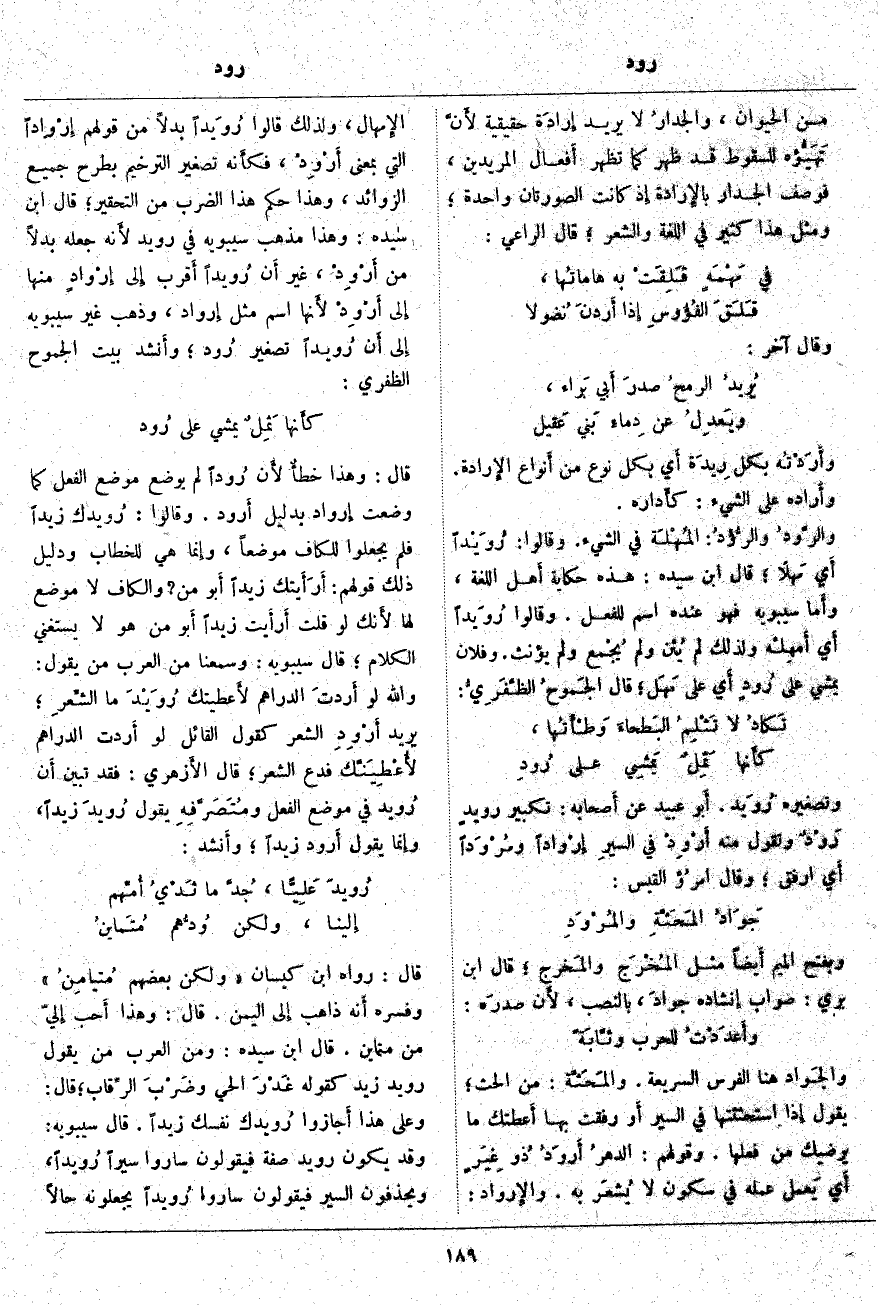 رود
رود
مـن الحيوان ، والجدارُ لا يريـد إرادَة حقيقية لأنّ
تَهَيُّؤَه للسقوط قـد ظهر كما تظهر أفعـال المريدين ،
فوصف الجـدار بالإرادة إذ كانت الصورتان واحدة ؛
ومثل هذا كثير في اللغة والشعر ؛ قال الراعي :
في مَهْمَهٍ قَلِقَتْ به هاماتُها ،
قَلَقَ الفُؤوسِ إذا أردنَ نُضولا
وقال آخر :
يُريدُ الرمحُ صدرَ أبي بَراء ،
ويَعدِلُ عن دِماء بَني عَقيل
وأَرَدْتُه بكل رِيدَة أي بكل نوع من أنواع الإرادة.
وأراده على الشيء : كأداره .
والرَّودُ والرُّؤدُ: المُهْلَة في الشيء. وقالوا: رُوَيْداً
أي مَهلًا ؛ قال ابن سيده : هـذه حكاية أهـل اللغة ،
وأما سيبويه فهو عنده اسم للفعـل . وقالوا رُوَيداً
أي أَمهِلْه ولذلك لم يُثن ولم يُجْمع ولم يؤنث. وفلان
يمشي على رُودٍ أي على مَهَل؛ قال الجَموحُ الظَّفَرِيُّ:
تَكادُ لا تَثلِمُ البَطحاءَ وَطْأَتُها ،
كأنها ثَمِلٌ يَمْشِي عـلى رُودِ
وتصغيره رُوَيد . أبو عبيد عن أصحابه : تكبير رويدٍ
رَوْدٌ وتقول منه أَرْوِدْ في السيرِ إرْواداً ومُرْوَداً
أي ارفق ؛ وقال امرؤ القيس :
جَوَادُ المَحَثَّةِ والمُرْوَدِ
وبفتح الميم أيضاً مثـل المُخْرَج والمَخرج ؛ قال ابن
بري : صواب إنشاده جوادَ ، بالنصب ، لأن صدرَه :
وأَعْدَدْتُ للحرب وثَّابَةً
والجَواد هنا الفرس السريعة . والمَحَثَّة : من الحث؛
يقول إذا استحثثتها في السير أو رفقت بهـا أعطتك ما
يرضيك من فعلها . وقولهم : الدهرُ أَروَدُ ذُو غِيَرٍ
أي يَعمل عمله في سكون لا يُشعَر به . والإرواد :
الإمهال، ولذلك قالوا رُوَيداً بدلاً من قولهم إرْواداً
التي بمعنى أَرْوِدْ ، فكأنه تصغير الترخيم بطرح جميع
الزوائد ، وهذا حكم هذا الضرب من التحقير؛ قال ابن
سيده : وهذا مذهب سيبويه في رويد لأنه جعله بدلاً
من أَرْوِدْ ، غير أن رُويداً أقرب إلى إرْوادٍ منها
إلى أَرْوِدْ لأنها اسم مثل إرواد ، وذهب غير سيبويه
إلى أن رُويـداً تصغير رُود ؛ وأنشد بيت الجموح
الظفري :
كأنها ثَمِلٌ يمشي على رُود
قال : وهذا خطأٌ لأن رُوداً لم يوضع موضع الفعل كما
وضعت إرواد بدليل أرود . وقالوا : رُويدك زيداً
فلم يجعلوا للكاف موضعاً ، وإنما هي للخطاب ودليل
ذلك قولهم: أرَأَيتك زيداً أبو من؟ والكاف لا موضع
لها لأنك لو قلت أرأيت زيداً أبو من هو لا يستغني
الكلام ؛ قال سيبويه : وسمعنا من العرب من يقول:
والله لو أردتَ الدراهم لأعطيتك رُوَيْدَ ما الشِّعرِ ؛
يريد أَرْوِدِ الشعر كقول القائل لو أردت الدراهم
لأُعْطِيَنَّك فدع الشعر؛ قال الأزهري : فقد تبين أن
رُويد في موضع الفعل ومُتَصَرَّفِهِ يقول رُويدَ زيداً،
وإنما يقول أرود زيداً ؛ وأنشد :
رُويدَ عَلِيًّا ، جُدَّ ما ثَدْيُ أُمِّهم
إلينا ، ولكن وُدُّهم مُتَماينُ
قال : رواه ابن كيسان « ولكن بعضهم مُتيامِنُ »
وفسره أنه ذاهب إلى اليمن . قال : وهذا أحب إليّ
من متماين . قال ابن سيده : ومن العرب من يقول
رويد زيد كقوله غَدْرَ الحي وضَرْبَ الرِّقاب؛ قال:
وعلى هذا أجازوا رُويدك نفسك زيداً . قال سيبويه:
وقد يكون رويد صفة فيقولون ساروا سيراً رُويداً،
ويحذفون السير فيقولون ساروا رُويداً يجعلونه حالاً
١٨٩